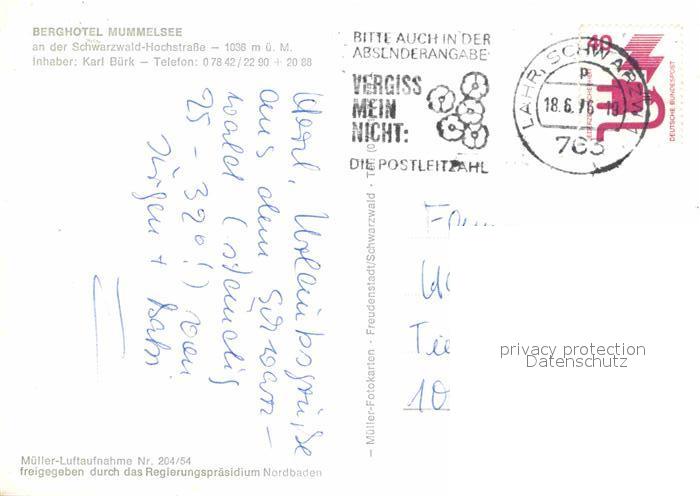 BERGHOTEL MUMMELSEE
an der Schwarzwald-Hochstraße — 1036 m ü. M.
Inhaber: Karl Bürk — Telefon: 0 78 42 / 22 90 + 20 88
BITTE AUCH IN DER
ABSENDERANGABE
VERGISS
MEIN
NICHT:
DIE POSTLEITZAHL
LAHR, SCHWARZW
p
18.6.76-19
763
40
DEUTSCHE BUNDESPOST
Herzl. Urlaubsgrüße
aus dem Schwarz-
wald (ständig
25-32°!) von
Jürgen + Babsi
— Müller-Fotokarten · Freudenstadt/Schwarzwald · Tel.
Fam
10
privacy protection
Datenschutz
Müller-Luftaufnahme Nr. 204/54
freigegeben durch das Regierungspräsidium Nordbaden